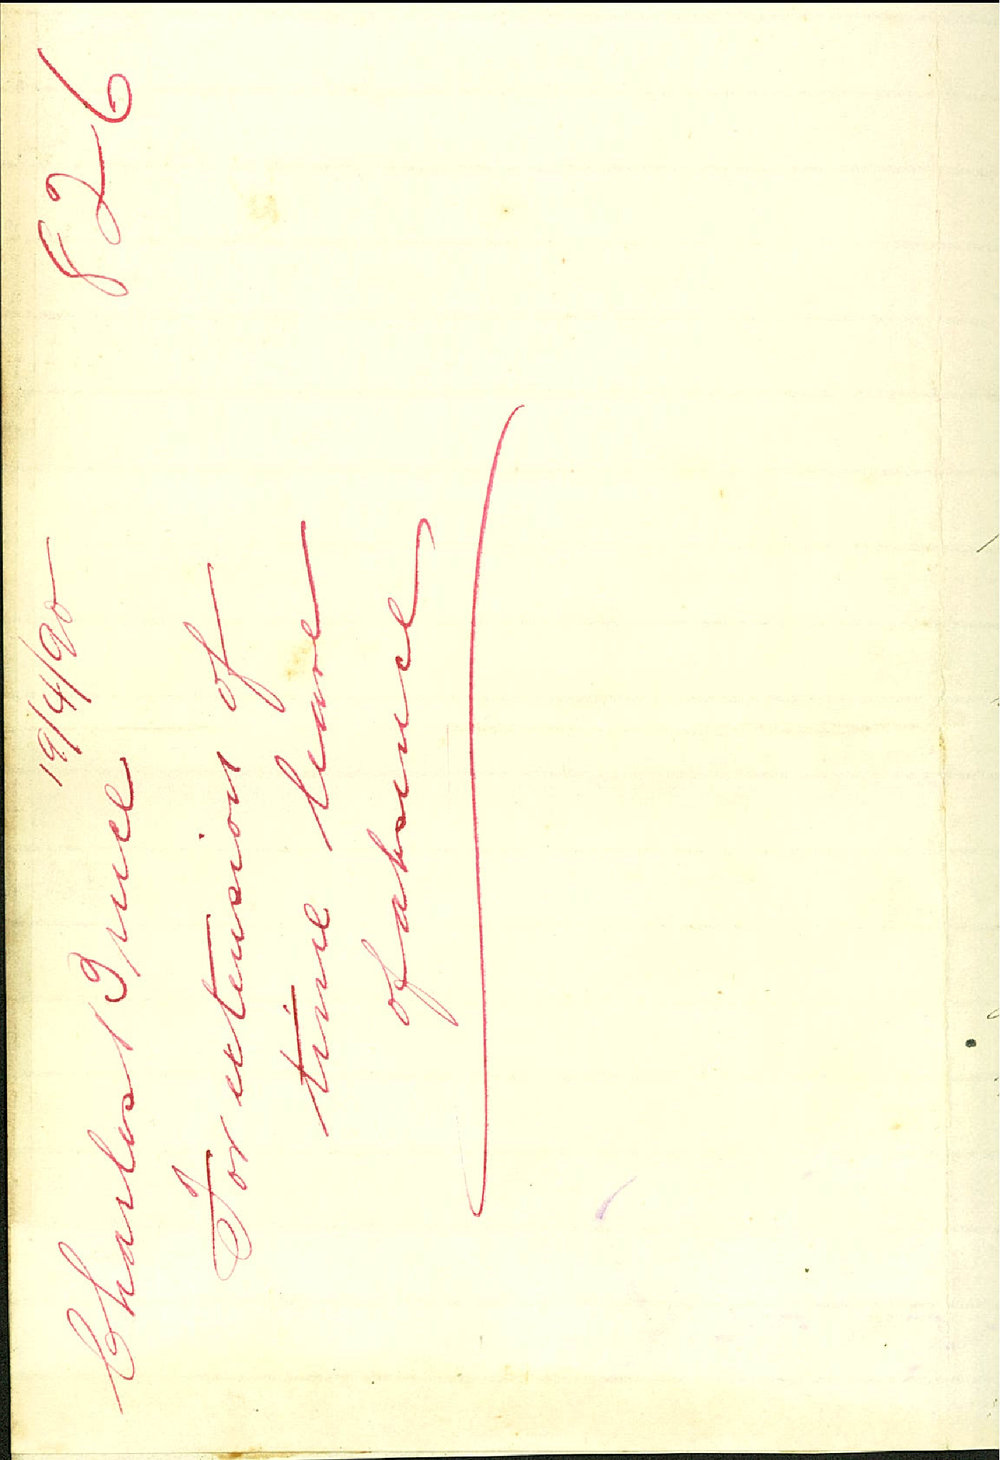 826
19/4/90
Charles Bruce
For extension of
time leave
of absence